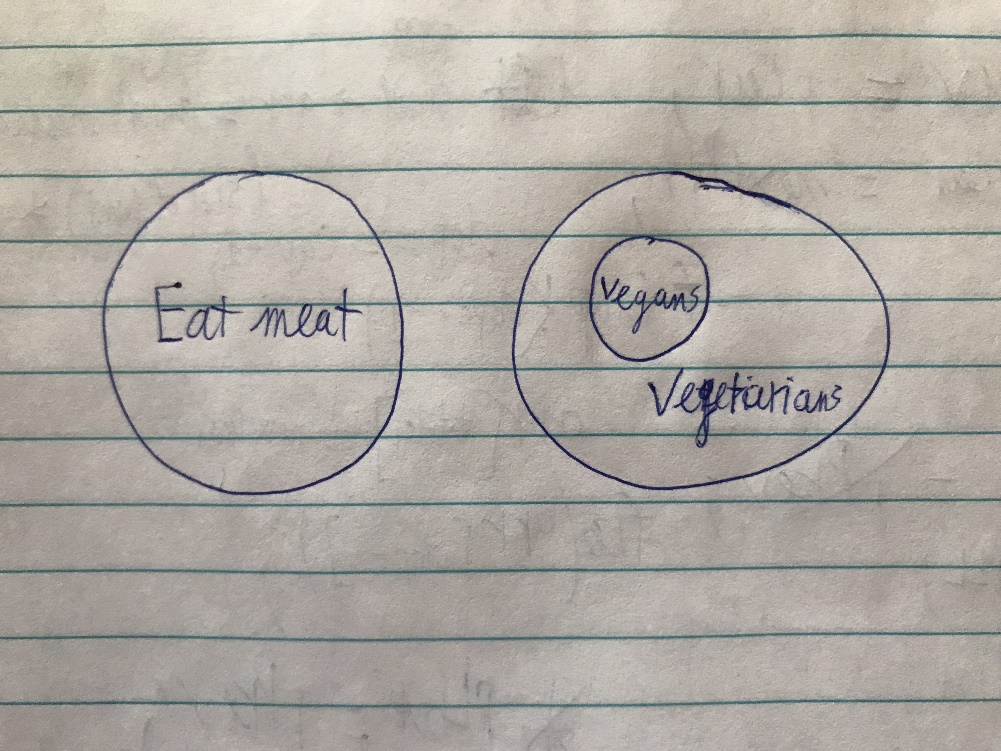 Eat meat
Vegans
Vegetarians